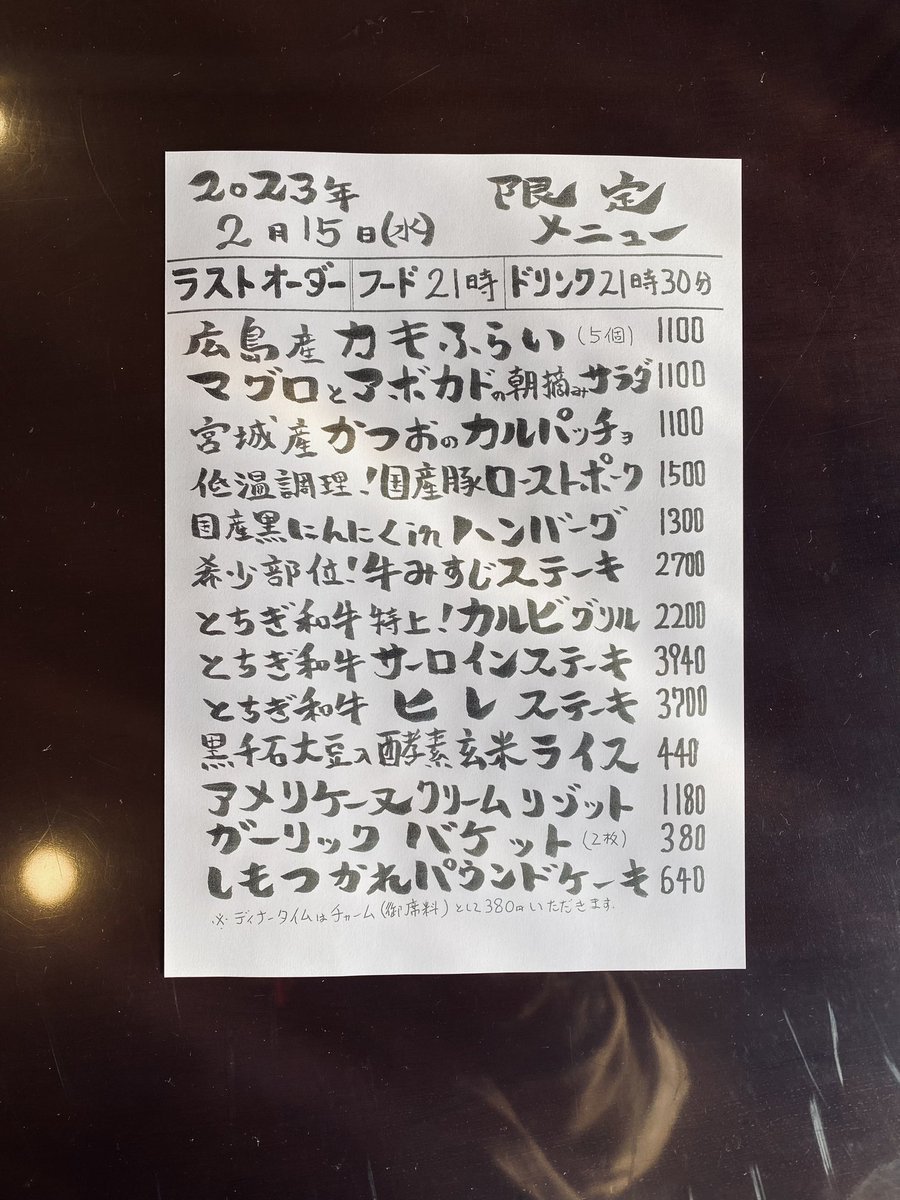 2023年 限定
2月15日(水) メニュー
ラストオーダー フード21時 ドリンク21時30分
広島産カキふらい(5個) 1100
マグロとアボカドの朝摘みサラダ 1100
宮城産かつおのカルパッチョ 1100
低温調理!国産豚ローストポーク 1500
国産黒にんにくinハンバーグ 1300
希少部位!牛みすじステーキ 2700
とちぎ和牛特上!カルビグリル 2200
とちぎ和牛サーロインステーキ 3940
とちぎ和牛ヒレステーキ 3700
黒千石大豆入酵素玄米ライス 440
アメリケーヌクリームリゾット 1180
ガーリックバケット(2枚) 380
しもつかれパウンドケーキ 640
※ディナータイムはチャーム(御席料)として380円いただきます。